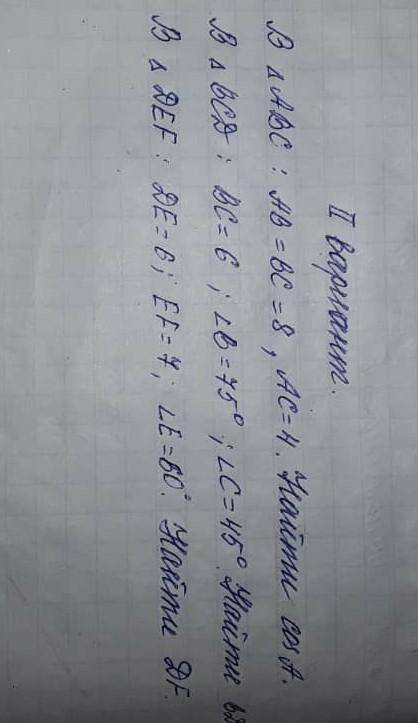 II вариант.
В ∆ ABC : AB = BC = 8 , AC = 4. Найти cos A.
В ∆ BCD : BC = 6 ; ∠B = 75° ; ∠C = 45°. Найти BD
В ∆ DEF : DE = 6 ; EF = 7 ; ∠E = 60°. Найти DF.